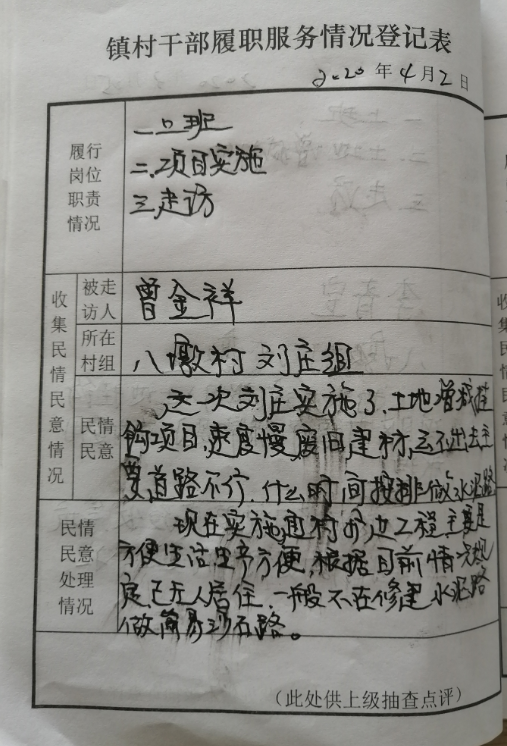 镇村干部履职服务情况登记表
2020年4月2日
履行
岗位
职责
情况
一口班
二、项目实施
三走访
收集民情民意情况
被走
访人
曾金祥
所在
村组
八墩村 刘庄组
民情
民意
这次刘庄实施了土地增减挂
钩项目,速度慢废旧建材,运不出去主
要道路不行,什么时间按排做水泥路
民情
民意
处理
情况
现在实施通村 工程主要是
方便生活生产方便,根据目前情况规
定已无人居住,一般不在修建水泥路
做简易沙石路。
(此处供上级抽查点评)